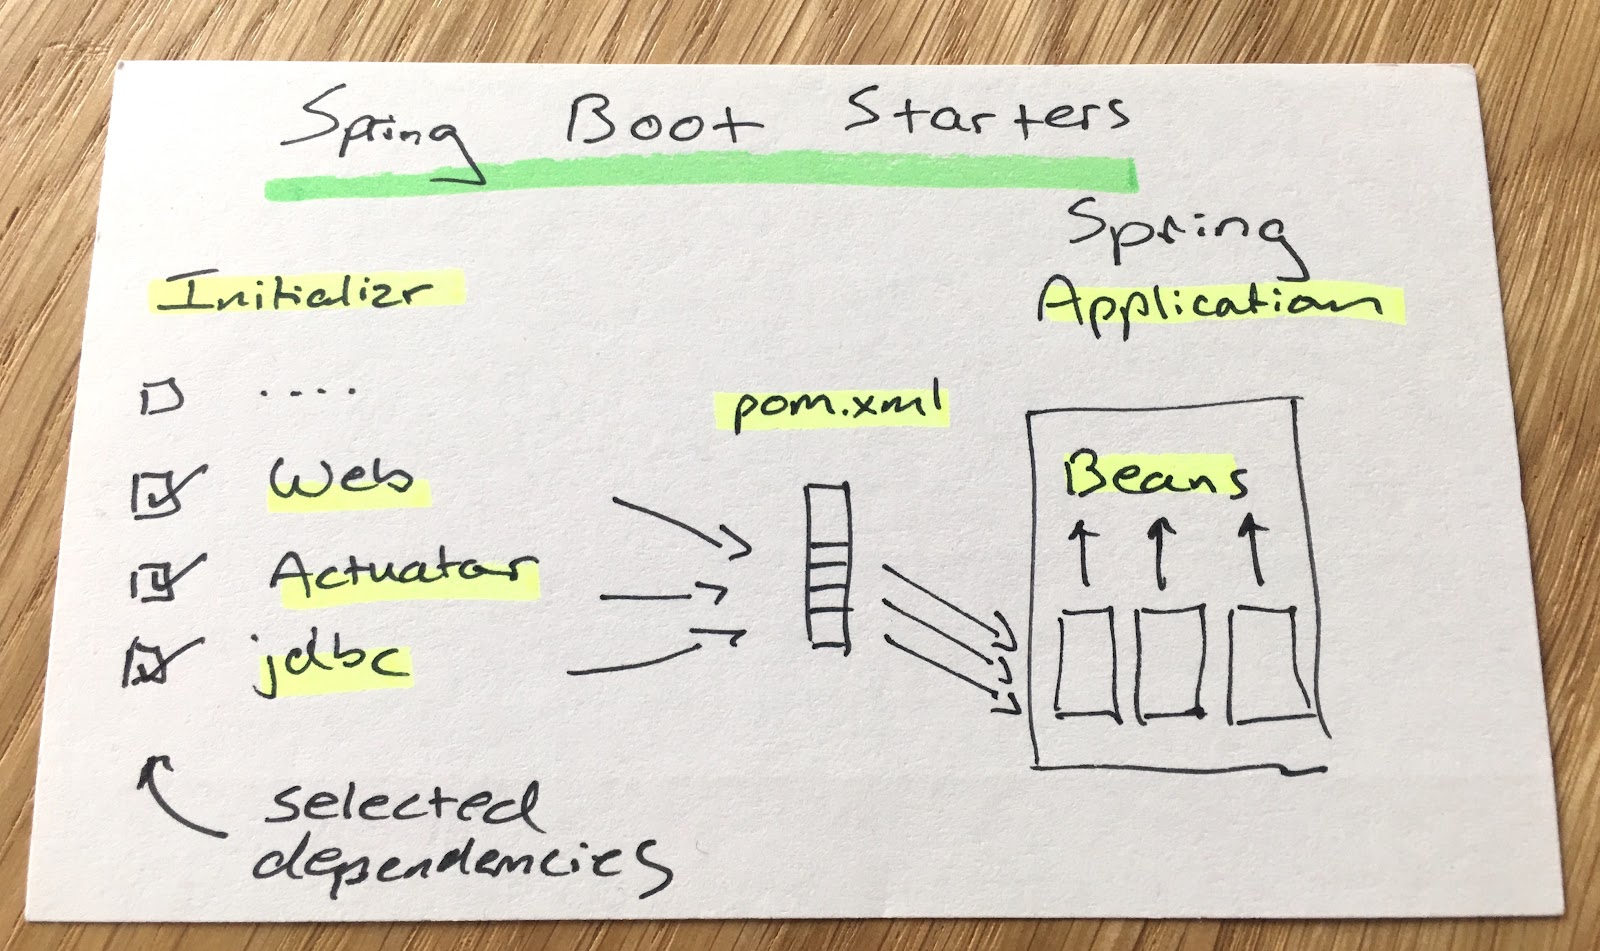 Spring Boot Starters
Initializr
....
Web
Actuator
jdbc
selected
dependencies
pom.xml
Spring
Application
Beans